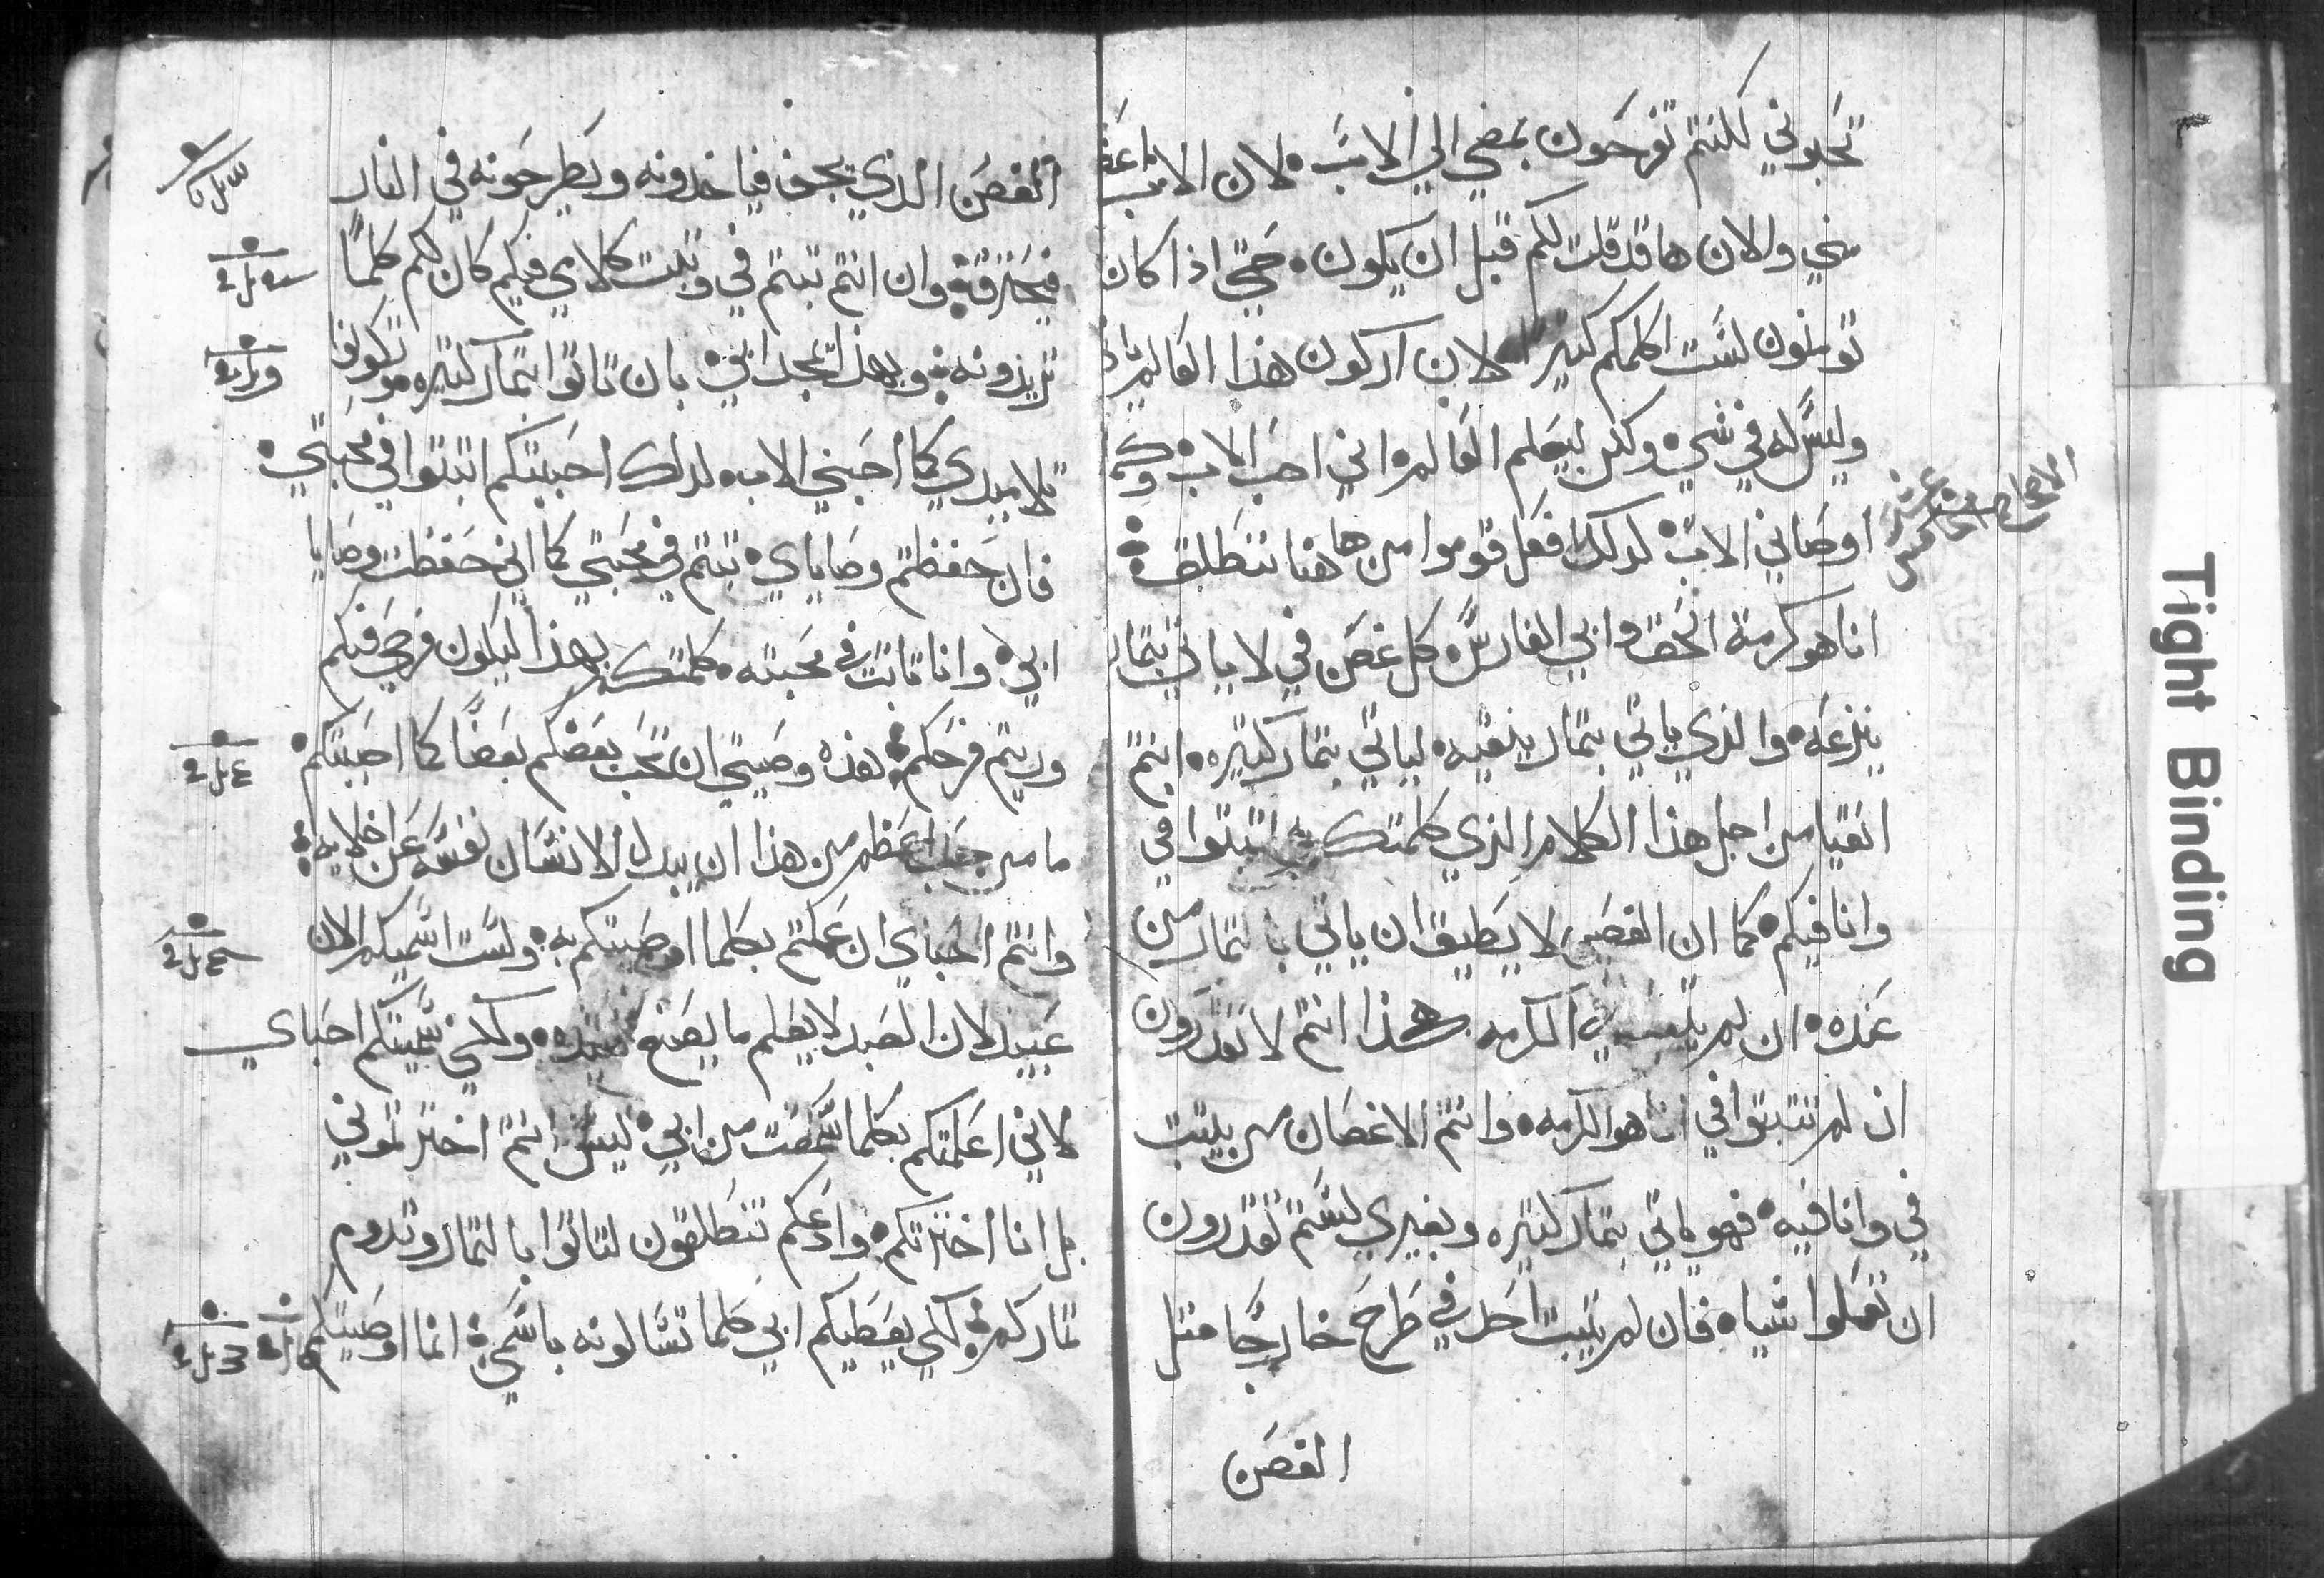 تحبوني لكنتم تفرحون بمضي الي الاب لان الاب اعظم
مني والان ها قد قلت لكم قبل ان يكون حتي اذا كان
تومنون لست اكلمكم كتيرا لان اركون هذا العالم ياتي
وليس له في شي ولكن ليعلم العالم اني احب الاب وكما
اوصاني الاب كدلك افعل قوموا من هاهنا ننطلق
الاصحاح الخامس عشر
انا هو كرمة الحق وابي الفارس كل غصن في لا ياتي بتمار
ينزعه والذي ياتي بتمار ينقيه لياتي بتمار كتيره انتم
انقيا من اجل هذا الكلام الذي كلمتكم به اتبتوا في
وانا فيكم كما ان الغصن لا يطيق ان ياتي بالتمار من
عنده ان لم يتبت في الكرمه هكذا انتم لا تقدرون
ان لم تتبتوا في انا هو الكرمه وانتم الاغصان من يتبت
في وانا فيه فهو ياتي بتمار كتيره وبغيري لستم تقدرون
ان تعملوا شيا فان لم يتبت احد في طرح خارجا متل
الغصن
الغصن الذي يجف فياخدونه ويطرحونه في النار
فيحترق وان انتم تبتم في وتبت كلامي فيكم كان لكم كلما
تريدونه وبهذا يتمجد ابي بان تاتوا بتمار كتيره وتكونوا
تلاميدي كما احبني الاب كدلك احببتكم اتبتوا في محبتي
فان حفظتم وصاياي تبتم في محبتي كما اني حفظت وصايا
ابي وانا تابت في محبته كلمتكم بهذا ليكون فرحي فيكم
ويتم فرحكم هذه وصيتي ان تحب بعضكم بعضا كما احببتكم
ما من حب اعظم من هذا ان يبدل الانسان نفسه عن اخلايه
وانتم احباي ان عملتم بكلما اوصيتكم به ولست اسميكم الان
عبيد لان العبد لا يعلم ما يصنع سيده ولكني سميتكم احباي
لاني اعلمتكم بكلما سمعت من ابي ليس انتم اخترتموني
بل انا اخترتكم وادعكم تنطلقون لتاتوا بالتمار وتدوم
تماركم لكي يعطيكم ابي كلما تسالونه باسمي انما اوصيتكم